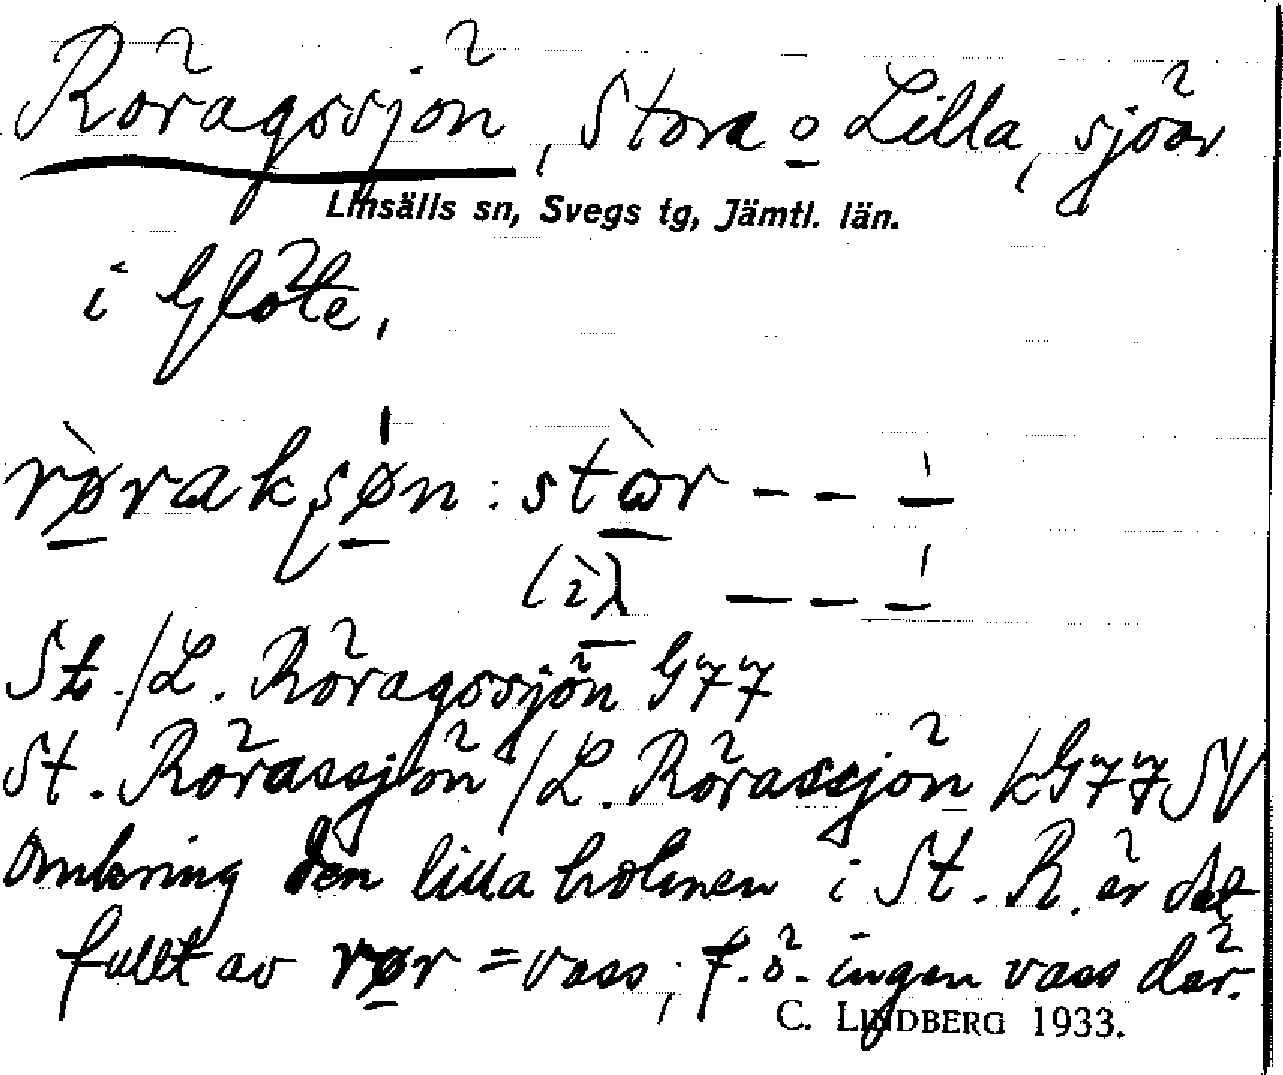 Röragssjön, Stora o Lilla, sjöar
Linsälls sn, Svegs tg, Jämtl. län.
i Glöte.
rø̀rakʂøn: stòr – – –
lìλ – – –
St./L. Röragssjön G77
St. Rörassjön/L. Rörassjön kG77SV
Omkring den lilla holmen i St. R. är det
fullt av rør = vass; f.ö. ingen vass där.
C. LINDBERG 1933.